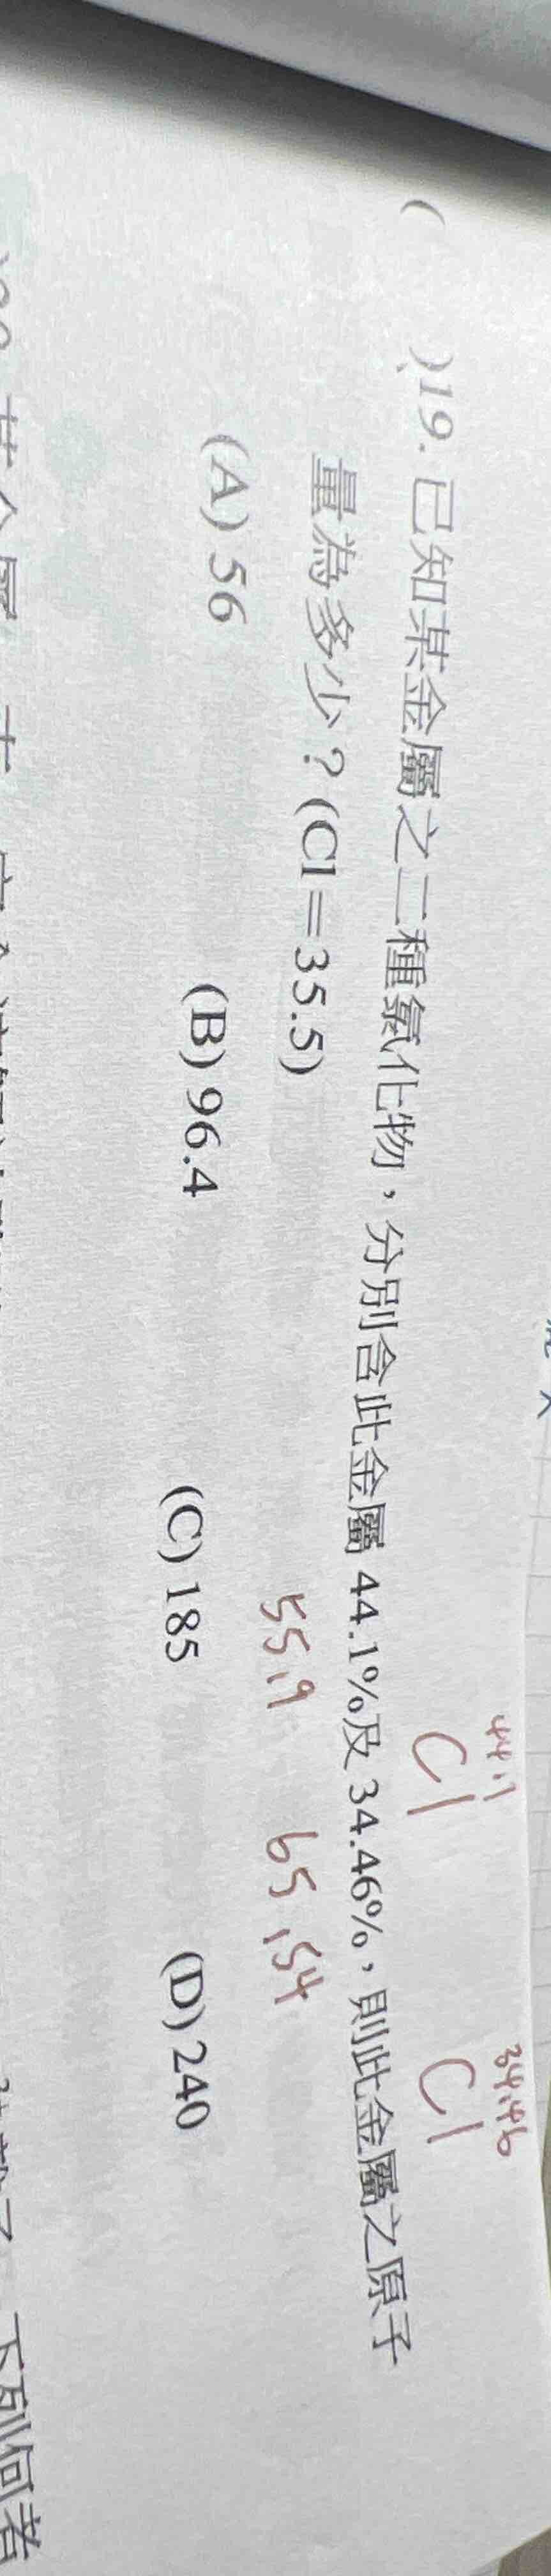 44.1 34.46
Cl Cl
( )19. 已知某金屬之二種氯化物，分別含此金屬 44.1%及 34.46%，則此金屬之原子
量為多少？(Cl＝35.5)
55.9 65.54
(A) 56 (B) 96.4 (C) 185 (D) 240
下列何者